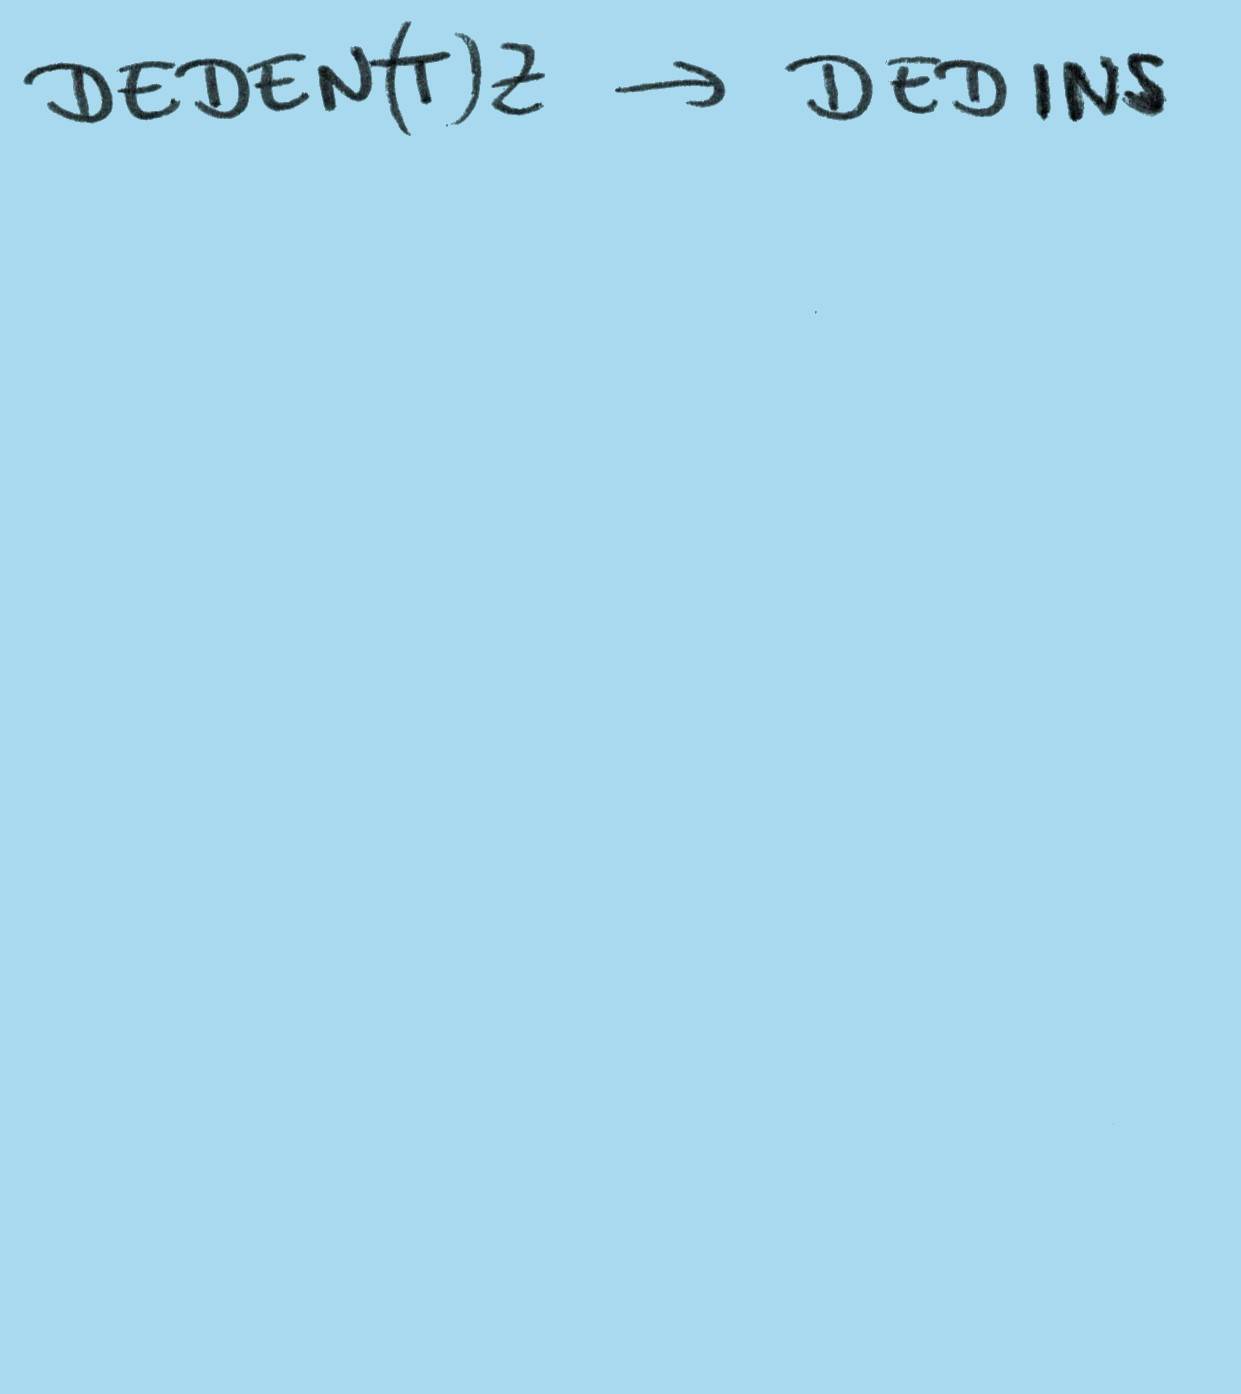 DEDEN(T)Z → DEDINS